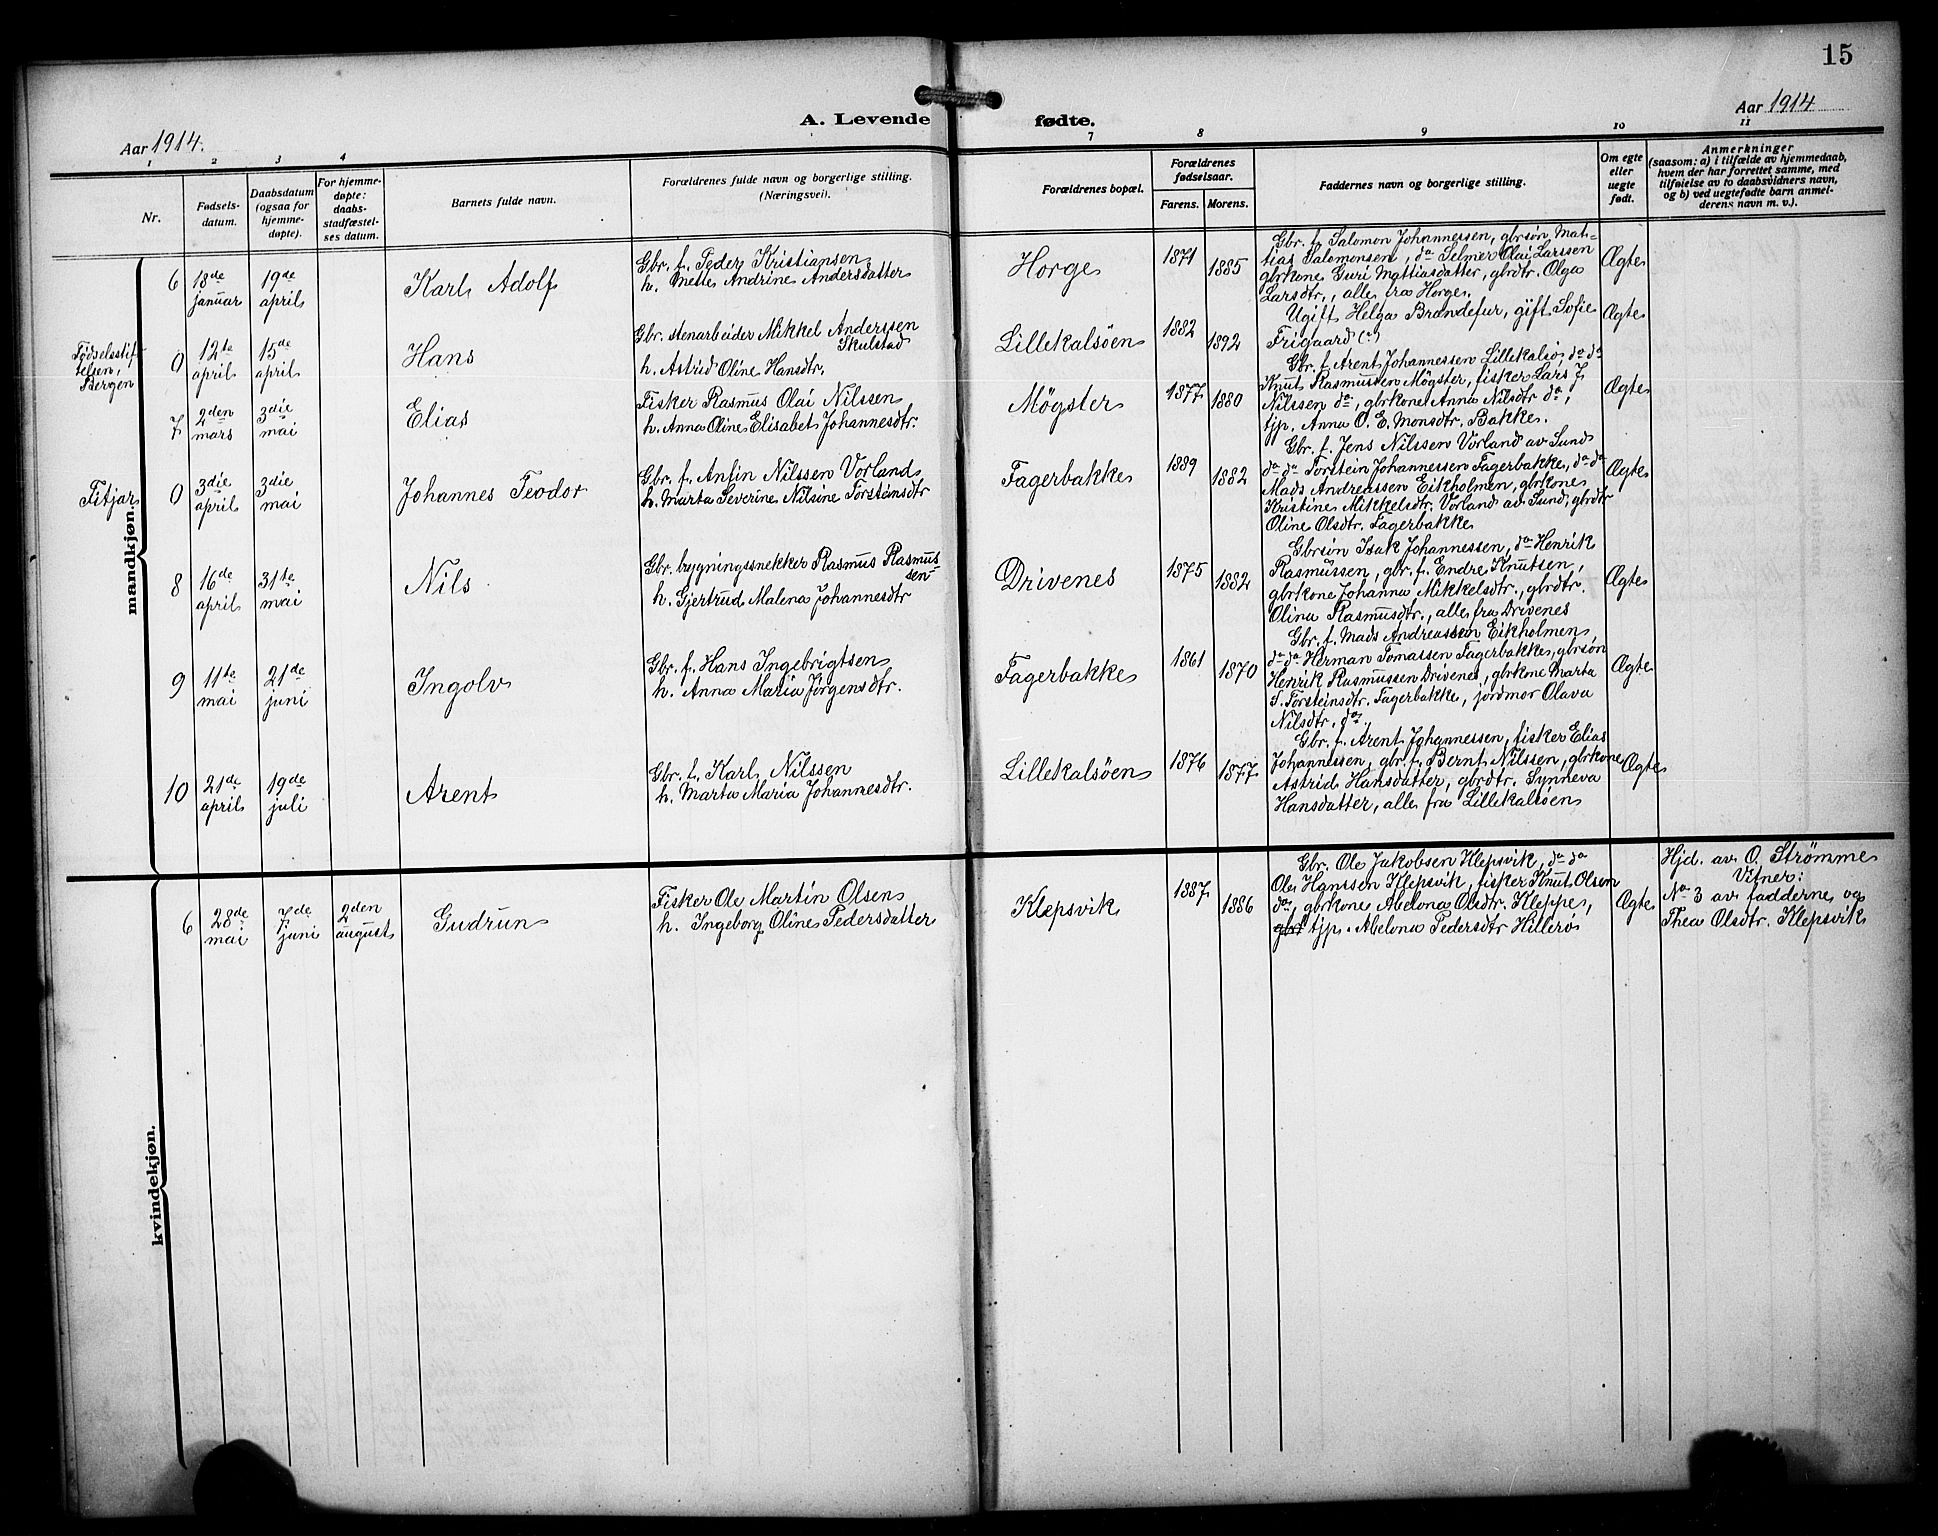 15
Aar 1914.
A. Levende fødte.
Aar 1914
1 2 3 4 7 8 9 10 11
Nr.
Fødsels-
datum.
Daabsdatum
(ogsaa for
hjemme-
døpte).
For hjemme-
døpte:
daabs-
stadfæstel-
ses datum.
Barnets fulde navn.
Forældrenes fulde navn og borgerlige stilling.
(Næringsvei).
Forældrenes bopæl.
Forældrenes
fødselsaar.
Farens. Morens.
Faddernes navn og borgerlige stilling.
Om egte
eller
uegte
født.
Anmerkninger
(saasom: a) i tilfælde av hjemmedaab,
hvem der har forrettet samme, med
tilføielse av to daabsvidners navn,
og b) ved uegtefødte barn anmel-
derens navn m. v.).
mandkjøn.
6
18de
januar
19de
april
Karl Adolf
Gbr. f. Peder Kristiansen
h. Mette Andrine Andersdatter
Horge
1871
1885
Gbr. f. Salomon Johannessen, gbrsøn Mat-
tias Salomonsen, da Selmer Olai Larssen
gbrkone Guri Mattiasdatter, gbrdtr. Olga
Larsdtr., alle fra Horge.
Ægte
Fødselsstif-
telsen,
Bergen
0
12te
april
15de
april
Hans
Gbr. stenarbeider Mikkel Anderssen
Skulstad
h. Astrid Oline Hansdtr.
Lillekalsöen
1882
1892
Ugift Helga Brandefur, gift Sofie
Frigaard
Ægte
Gbr. f. Arent Johannessen Lillekalsö, da da
7
2den
mars
3die
mai
Elias
Fisker Rasmus Olai Nilssen
h. Anna Oline Elisabet Johannesdtr.
Mögster
1877
1880
Knut Rasmussen Mögster, fisker Lars J.
Nilssen da, gbrkone Anna Nilsdtr da,
tjp. Anna O. E. Monsdtr. Bakke.
Ægte
Fitjar
0
3die
april
3die
mai
Johannes Teodor
Gbr. f. Anfin Nilssen Vorland
h. Marta Severine Nilsine Torsteinsdtr
Fagerbakke
1889
1882
Gbr. f. Jens Nilssen Vorland av Sund
da da Torstein Johannessen Fagerbakke, da da
Mads Andreassen Eikholmen, gbrkone
Kristine Mikkelsdtr. Vorland av Sund, gbrdtr
Oline Olsdtr. Fagerbakke
Ægte
8
16de
april
31te
mai
Nils
Gbr. bygningssnekker Rasmus Rasmus-
sen
h. Gjertrud Malena Johannesdtr
Drivenes
1875
1882
Gbrsön Isak Johannessen, da Henrik
Rasmussen, gbr. f. Endre Knutsen,
gbrkone Johanna Mikkelsdtr., gbrdtr.
Olina Rasmusdtr., alle fra Drivenes
Ægte
9
11te
mai
21de
juni
Ingolv
Gbr. f. Hans Ingebrigtsen
h. Anna Maria Jörgensdtr.
Fagerbakke
1861
1870
Gbr. f. Mads Andreassen Eikholmen,
da da Herman Tomassen Fagerbakke, gbrsön
Henrik Rasmussen Drivenes, gbrkone Marta
S. Torsteinsdtr. Fagerbakke, jordmor Olava
Nilsdtr. da
Ægte
10
21de
april
19de
juli
Arent
Gbr. f. Karl Nilssen
h. Marta Maria Johannesdtr.
Lillekalsöen
1876
1877
Gbr. f. Arent Johannessen, fisker Elias
Johannessen, gbr. f. Bernt Nilssen, gbrkone
Astrid Hansdatter, gbrdtr. Synneva
Hansdatter, alle fra Lillekalsöen
Ægte
kvindekjøn.
6
28de
mai
7de
juni
2den
august
Gudrun
Fisker Ole Martin Olsen
h. Ingeborg Oline Pedersdatter
Klepsvik
1887
1886
Gbr. Ole Jakobsen Klepsvik, da da
Ole Hanssen Klepsvik, fisker Knut Olsen
da, gbrkone Abelona Olsdtr. Kleppe,
tjp. Abelona Pedersdtr Hillerö
Ægte
Hjd. av O. Strömme
Vitner:
No 3 av fadderne og
Thea Olsdtr. Klepsvik